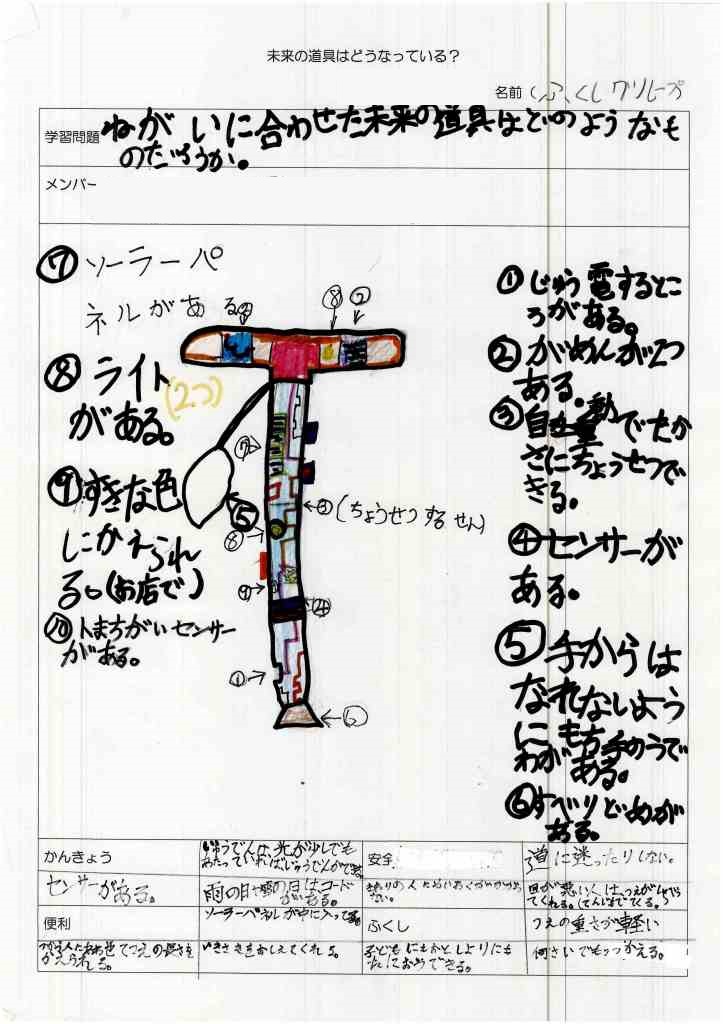 未来の道具はどうなっている?
名前 ふくしグループ
学習問題 ねがいに合わせた未来の道具はどのようなも
のだろうか。
メンバー
⑦ソーラーパ
ネルがある
⑧ライト
(2つ)
がある。
⑨すきな色
にかえられ
る。(お店で)
⑩人まちがいセンサー
がある。
⑧ ②
⑦
⑤
③(ちょうせつするせん)
⑧
⑨
④
①
⑥
①じゅう電するとこ
ろがある。
②がめんが2つ
ある。
③自動でたか
さにちょうせつで
きる。
④センサーが
ある。
⑤手からは
なれないよう
にもち手のうで
わがある。
⑥すべりどめが
ある。
かんきょう
じゅうでんは、光が少しでも
あたっていればじゅうでんができる
センサーがある。
雨の日や雪の日はコード
がある。
安全
道に迷ったりしない。
目が悪い人は、つえがしゃべっ
てくれる。
便利
ソーラーパネルが中に入ってる。
つかう人にあわせてつえの長さを
かえられる。
いきさきをおしえてくれる。
ふくし
つえの重さが軽い
子どもにもおとしよりにも
何さいでもつかえる。